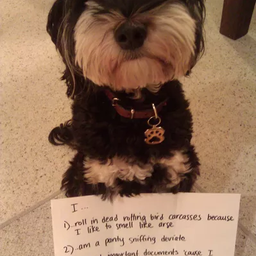 I...
1) roll in dead rotting bird carcasses because
I like to smell like arse.
2) am a panty sniffing deviete.
important documents 'cause I